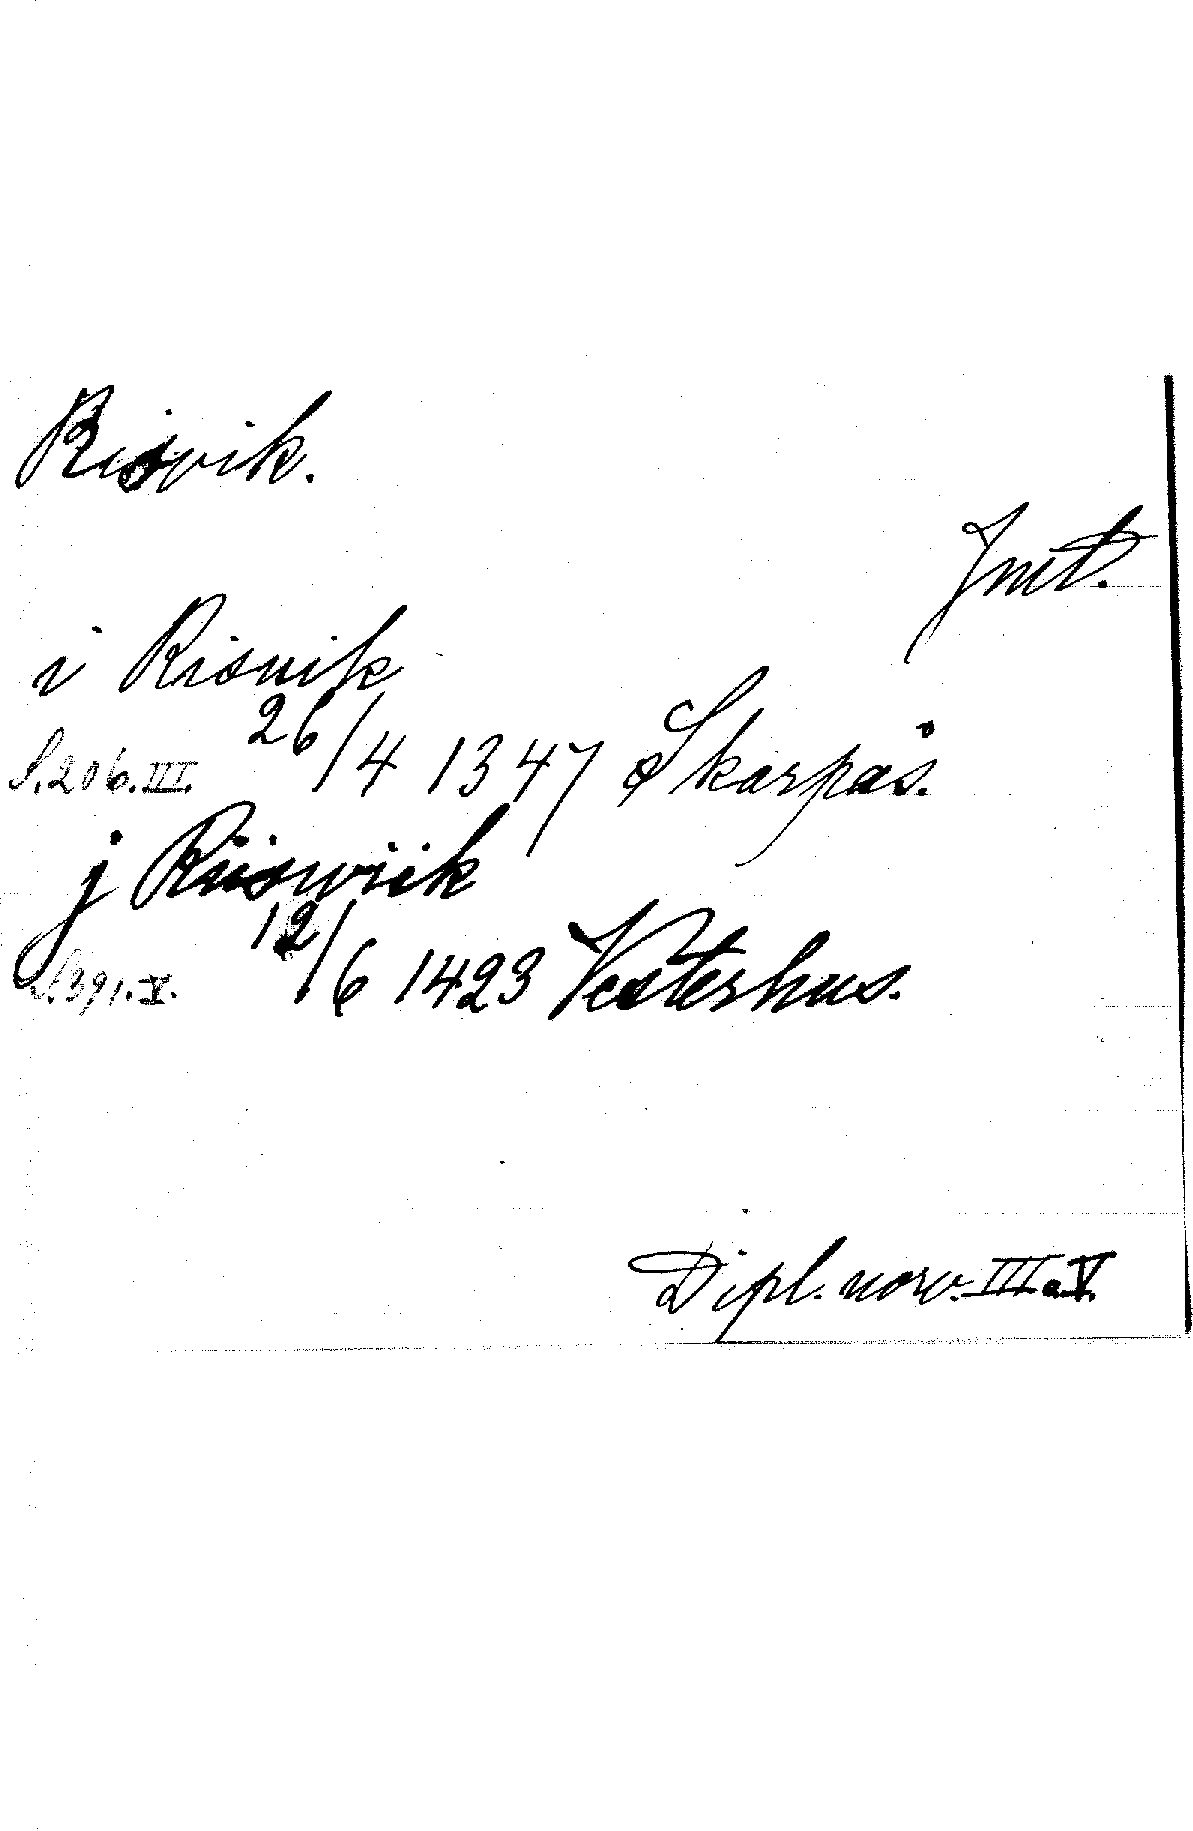 Risvik.
Jmt.
i Risuik
S. 206. III. 26/4 1347 Skarpås.
j Riiswiik
S. 391. V. 12/6 1423 Vesterhus.
Dipl. norv. III a. V.